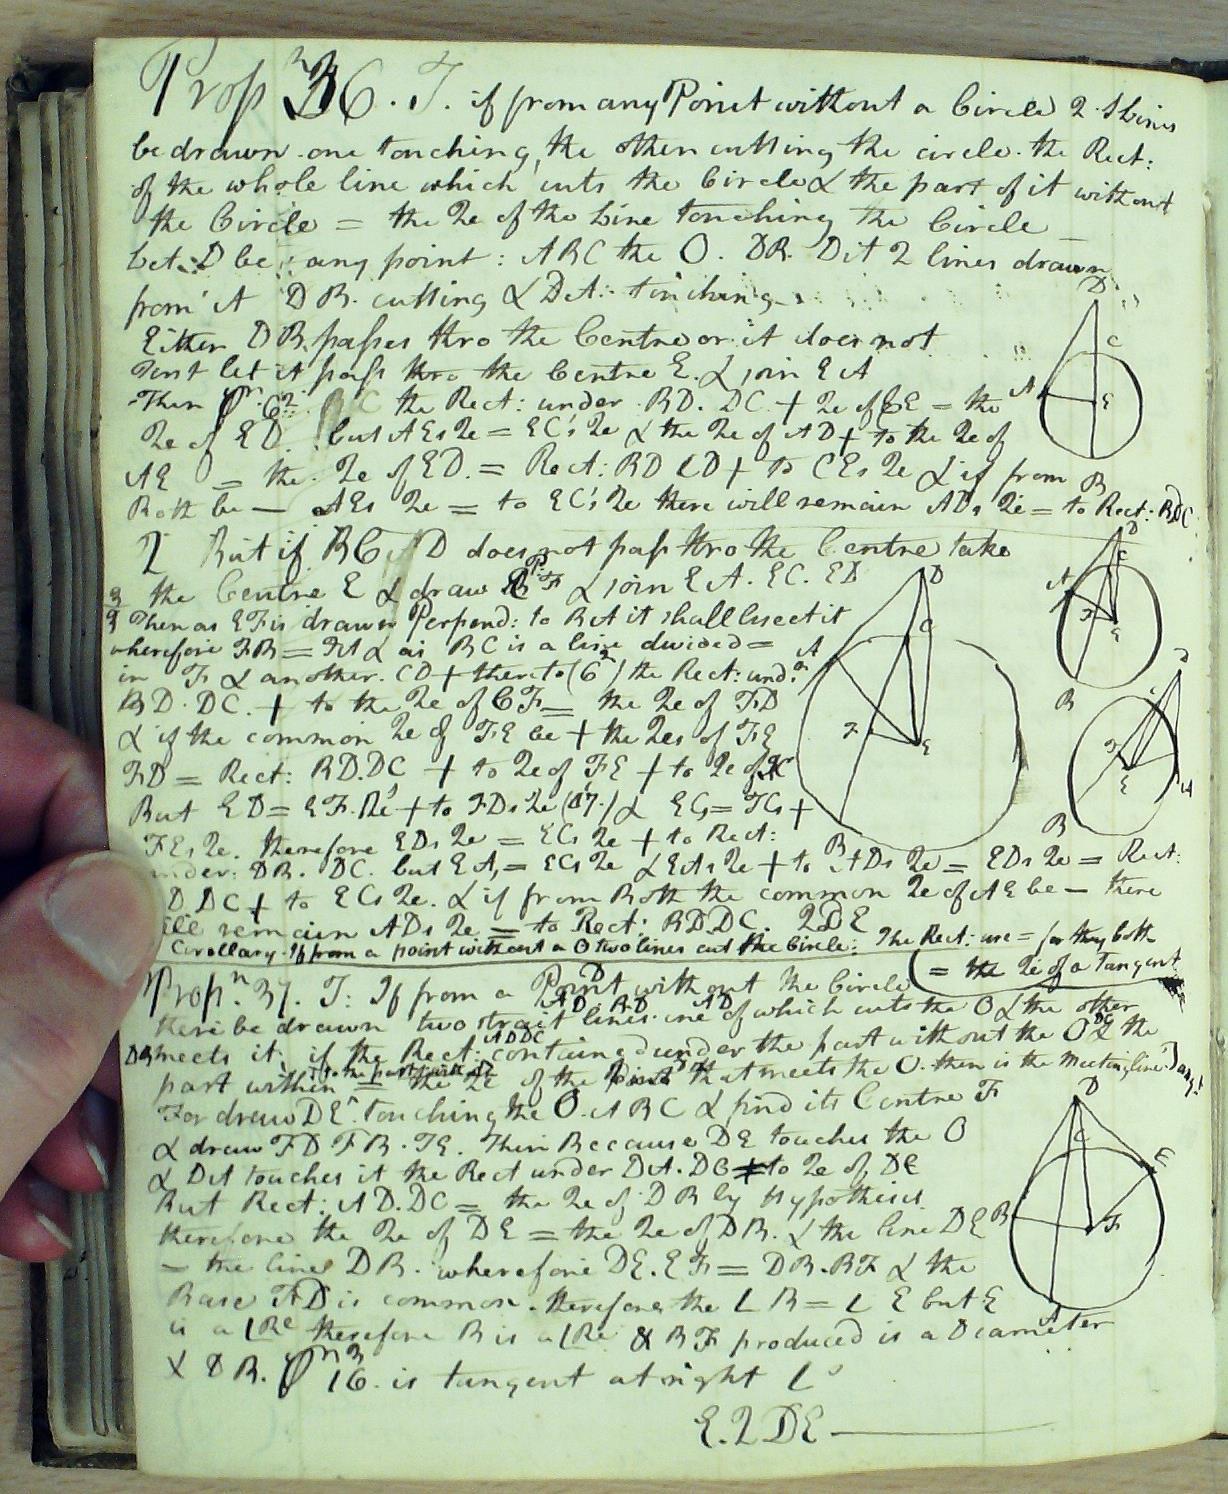 Propn 36. T. if from any Point without a Circle 2 s Lines
be drawn one touching, the other cutting the circle. the Rect:
of the whole line which cuts the Circle & the part of it without
the Circle = the 2e of the Line touching the Circle
Let D be any point: ABC the O. DB. DA 2 lines drawn
from A DB. cutting & DA: touching
Either DB passes thro the Centre or it does not
First let it pass thro the Centre E. & join EA
Then Prn. 6 2 the Rect: under BD. DC + 2e of CE = the
2e of ED but AEs 2e = EC's 2e & the 2e of AD + to the 2e of
AE = the 2e of ED. = Rect: BD CD + to CEs 2e & if from
Both be — AEs 2e = to EC's 2e there will remain ADs 2e = to Rect: BDC
2 But if BCD does not pass thro the Centre take
3 the Centre E & draw EF & join EA. EC. ED
3 Then as EF is drawn Perpend: to BC it shall bisect it
wherefore FB = FC & as BC is a line divided =
in F & another CD + thereto (6 2) the Rect: undr
BD. DC. + to the 2e of CF = the 2e of FD
& if the common 2e of FE be + the 2es of FE
FD = Rect: BD.DC + to 2e of FE + to 2e of FC
But ED = EF. 2e + to FDs 2e (47.1) & EC = FCs +
FEs 2e. therefore EDs 2e = ECs 2e + to Rect:
under: DB. DC. but EA, = ECs 2e & EAs 2e + to ADs 2e = EDs 2e = Rect:
D DC + to ECs 2e. & if from Both the common 2e of AE be — there
ill remain ADs 2e = to Rect: BD.DC. QDE
Corollary. If from a point without a O two lines cut the Circle: The Rect: are = for they both
= the 2e of a Tangent
Propn. 37. T: If from a Point D without the Circle
there be drawn two strait lines AD. BD one AD of which cuts the O & the other
DB meets it; if the Rect: ADDC contained under the part without the O DC & the
part within = the 2e of the that meets the O. then is the meeting line
For draw DE touching the O. ABC & find its Centre F
& draw FD FB. FE. Then Because DE touches the O
& DA touches it the Rect under DA. DC = to 2e of DE
But Rect: AD.DC = the 2e of DB by Hypothesis
therefore the 2e of DE = the 2e of DB. & the line DE
= the line DB. wherefore DE. EF = DB. BF & the
Base FD is common. therefore the L B = L E but E
is a LRe therefore B is a LRe & BF produced is a Diameter
& DB. Prn 16 3 is tangent at right L s
E. 2 DE